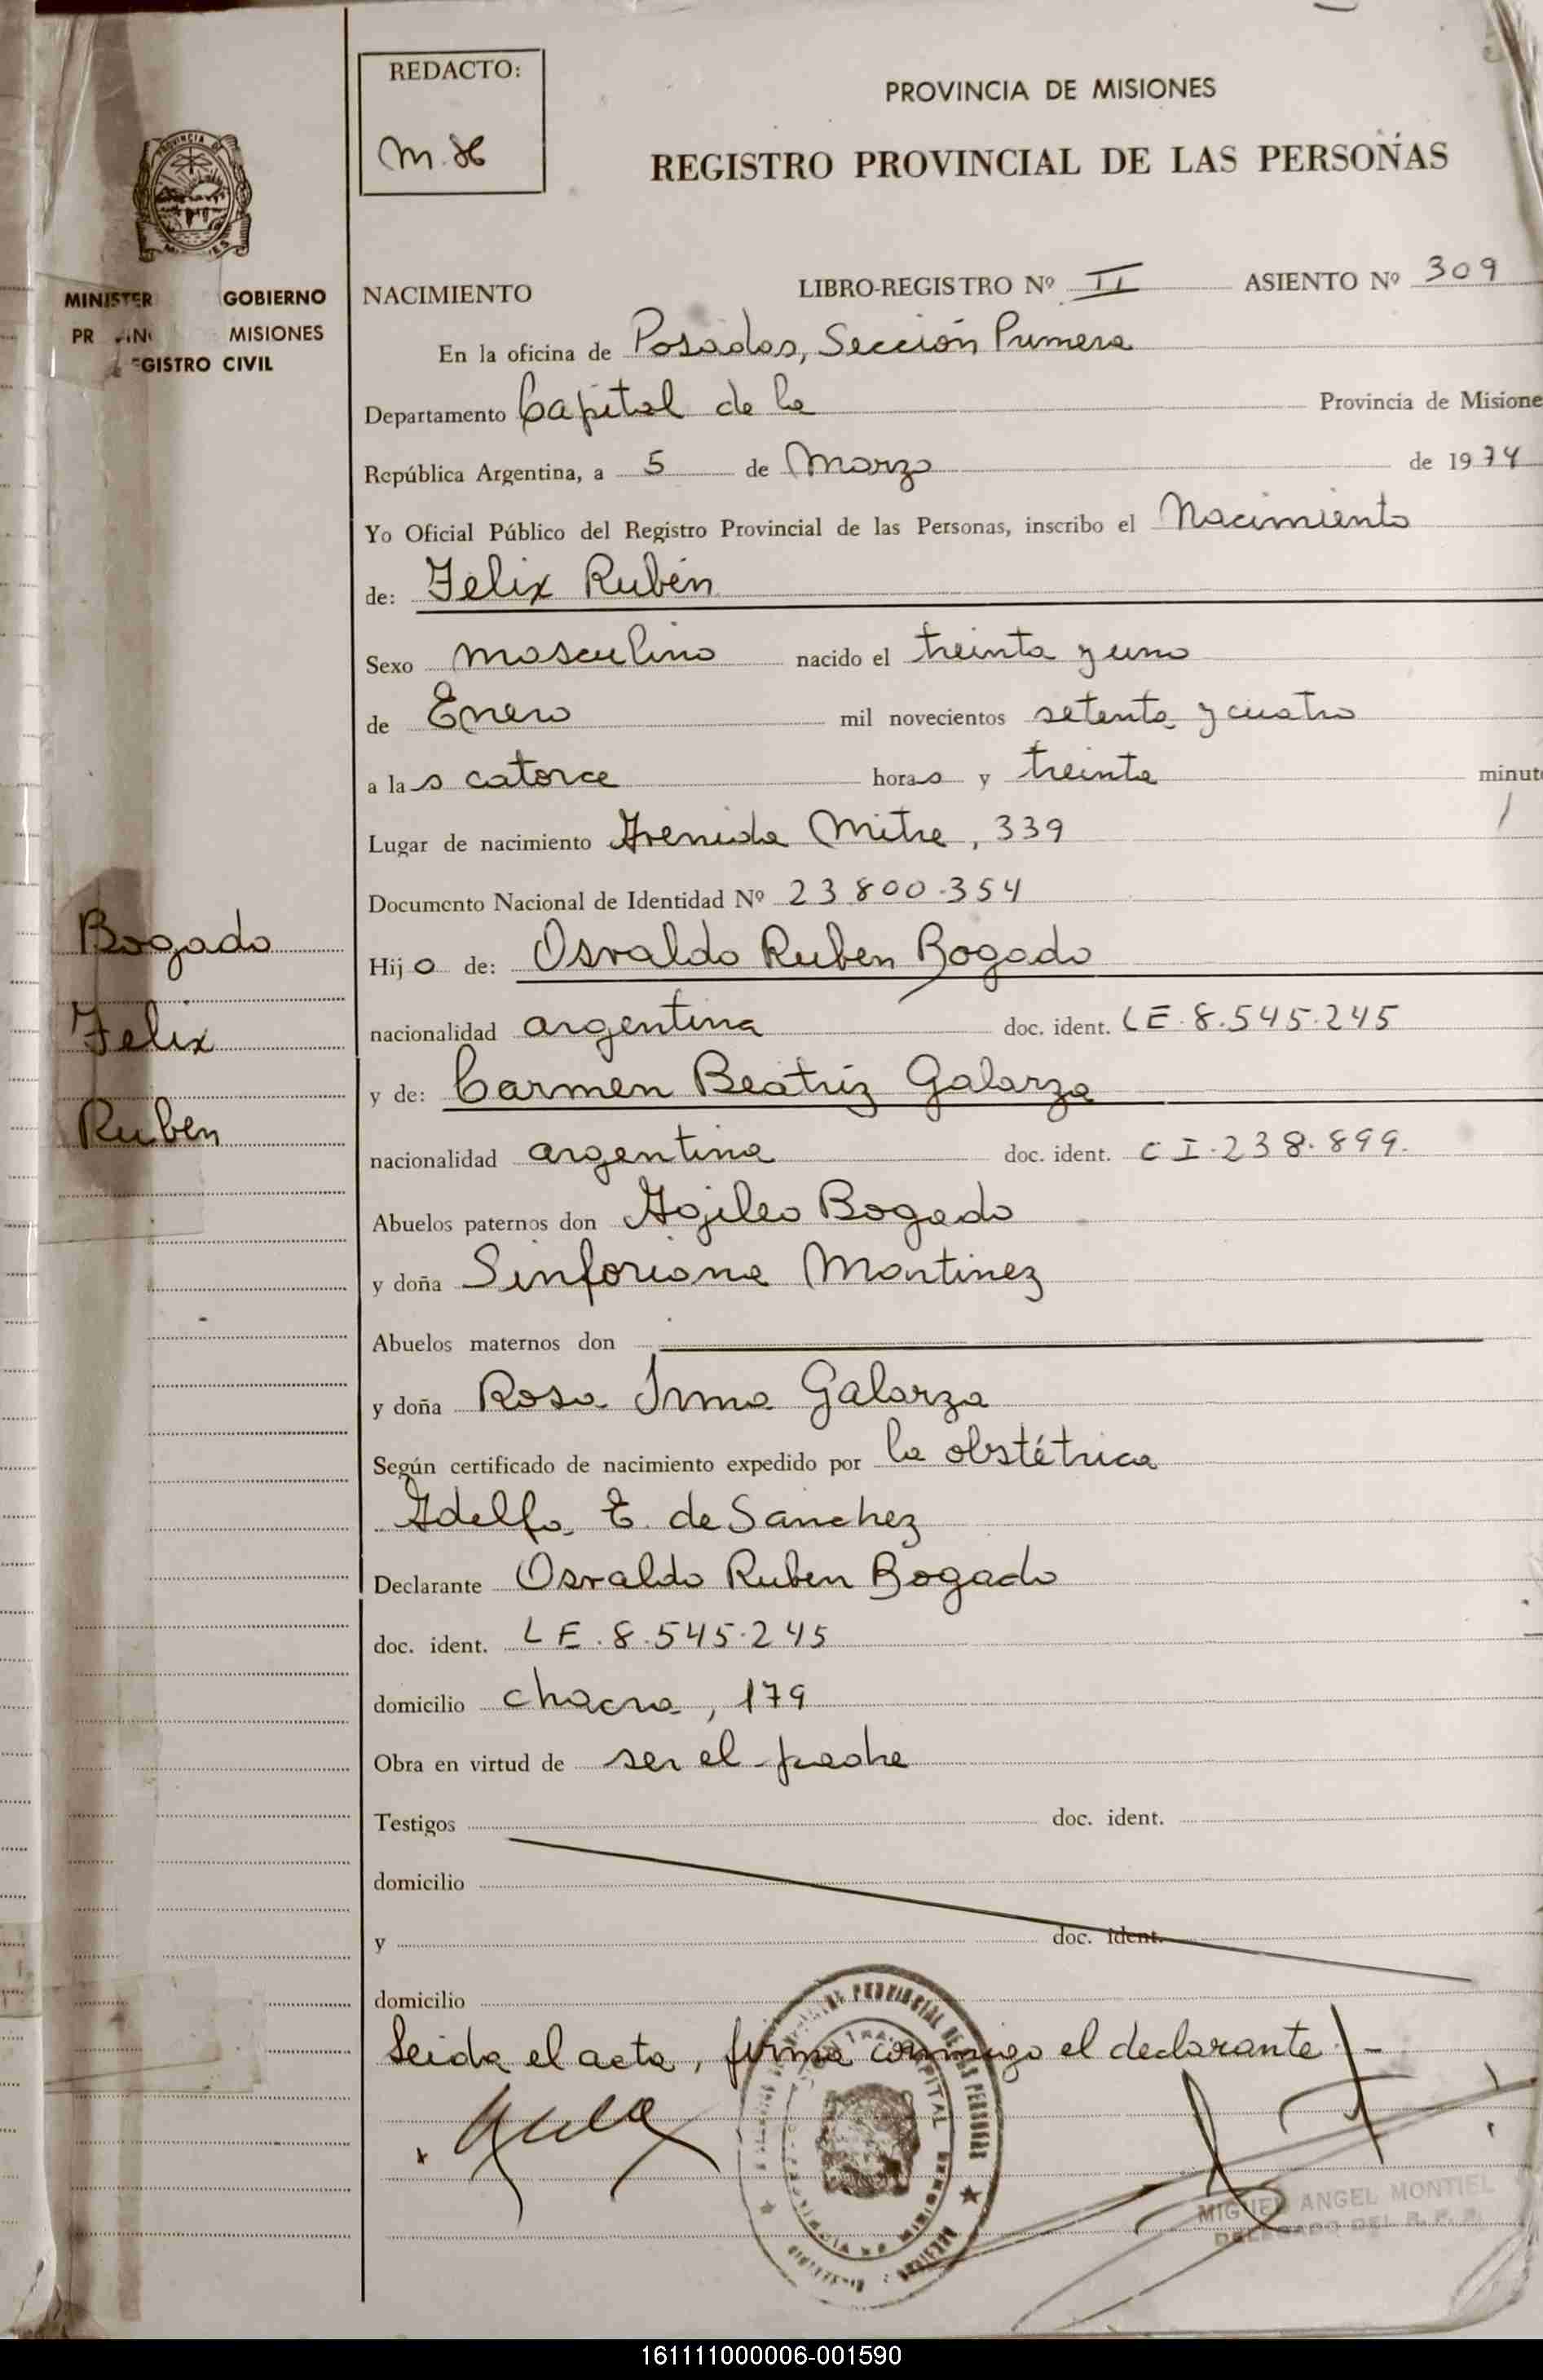 REDACTO:
M.H
PROVINCIA DE MISIONES
REGISTRO PROVINCIAL DE LAS PERSONAS
MINISTER GOBIERNO
PR INC MISIONES
EGISTRO CIVIL
NACIMIENTO LIBRO-REGISTRO Nº II ASIENTO Nº 309
En la oficina de Posadas, Sección Primera
Departamento Capital de la Provincia de Misione
República Argentina, a 5 de Marzo de 1974
Yo Oficial Público del Registro Provincial de las Personas, inscribo el Nacimiento
de: Felix Rubén
Sexo masculino nacido el treinta y uno
de Enero mil novecientos setenta y cuatro
a las catorce horas y treinta minut
Lugar de nacimiento Avenida Mitre, 339
Documento Nacional de Identidad Nº 23.800.354
Bogado
Felix
Ruben
Hijo de: Osvaldo Ruben Bogado
nacionalidad argentina doc. ident. LE.8.545.245
y de: Carmen Beatriz Galarza
nacionalidad argentina doc. ident. CI.238.899.
Abuelos paternos don Agileo Bogado
y doña Sinforiana Martinez
Abuelos maternos don
y doña Rosa Irma Galarza
Según certificado de nacimiento expedido por la obstétrica
Adelfa E. de Sanchez
Declarante Osvaldo Ruben Bogado
doc. ident. LE.8.545.245
domicilio chacra, 179
Obra en virtud de ser el padre
Testigos doc. ident.
domicilio
y doc. ident.
domicilio
Leida el acta, firma conmigo el declarante.-
MIGUEL ANGEL MONTIEL
DELEGADO DEL R. P. P.
161111000006-001590